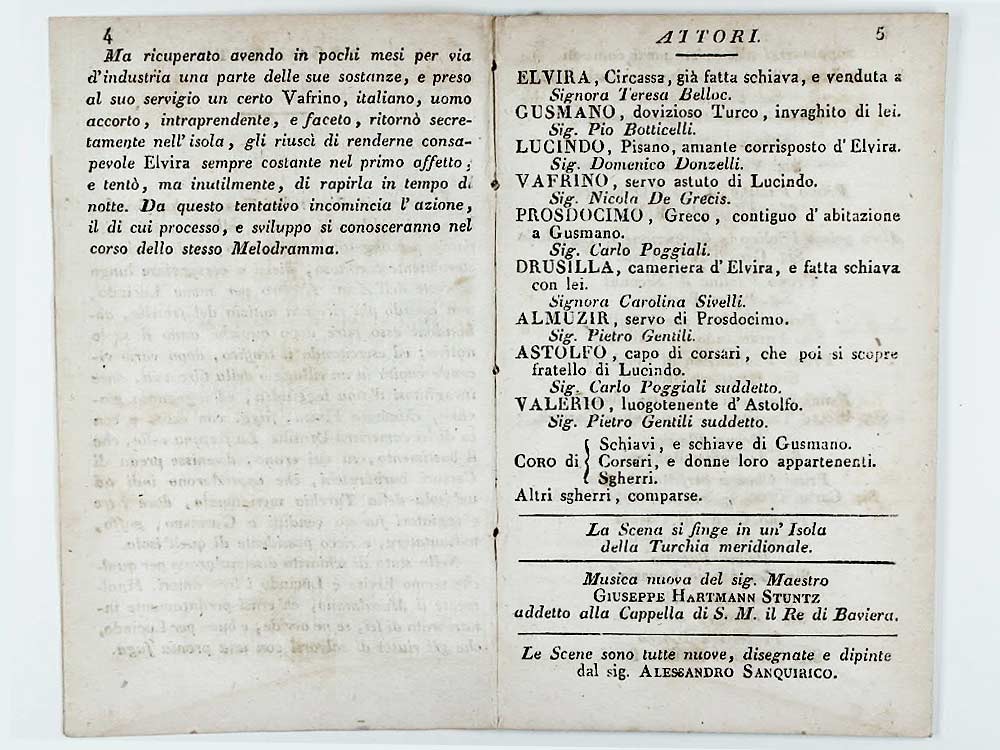 4
Ma ricuperato avendo in pochi mesi per via
d'industria una parte delle sue sostanze, e preso
al suo servigio un certo Vafrino, italiano, uomo
accorto, intraprendente, e faceto, ritornò secre-
tamente nell'isola, gli riuscì di renderne consa-
pevole Elvira sempre costante nel primo affetto,
e tentò, ma inutilmente, di rapirla in tempo di
notte. Da questo tentativo incomincia l'azione,
il di cui processo, e sviluppo si conosceranno nel
corso dello stesso Melodramma.
ATTORI. 5
ELVIRA, Circassa, già fatta schiava, e venduta a
Signora Teresa Belloc.
GUSMANO, dovizioso Turco, invaghito di lei.
Sig. Pio Botticelli.
LUCINDO, Pisano, amante corrisposto d'Elvira.
Sig. Domenico Donzelli.
VAFRINO, servo astuto di Lucindo.
Sig. Nicola De Grecis.
PROSDOCIMO, Greco, contiguo d'abitazione
a Gusmano.
Sig. Carlo Poggiali.
DRUSILLA, cameriera d'Elvira, e fatta schiava
con lei.
Signora Carolina Sivelli.
ALMUZIR, servo di Prosdocimo.
Sig. Pietro Gentili.
ASTOLFO, capo di corsari, che poi si scopre
fratello di Lucindo.
Sig. Carlo Poggiali suddetto.
VALERIO, luogotenente d'Astolfo.
Sig. Pietro Gentili suddetto.
Schiavi, e schiave di Gusmano.
CORO di Corsari, e donne loro appartenenti.
Sgherri.
Altri sgherri, comparse.
La Scena si finge in un'Isola
della Turchia meridionale.
Musica nuova del sig. Maestro
GIUSEPPE HARTMANN STUNTZ
addetto alla Cappella di S. M. il Re di Baviera.
Le Scene sono tutte nuove, disegnate e dipinte
dal sig. ALESSANDRO SANQUIRICO.